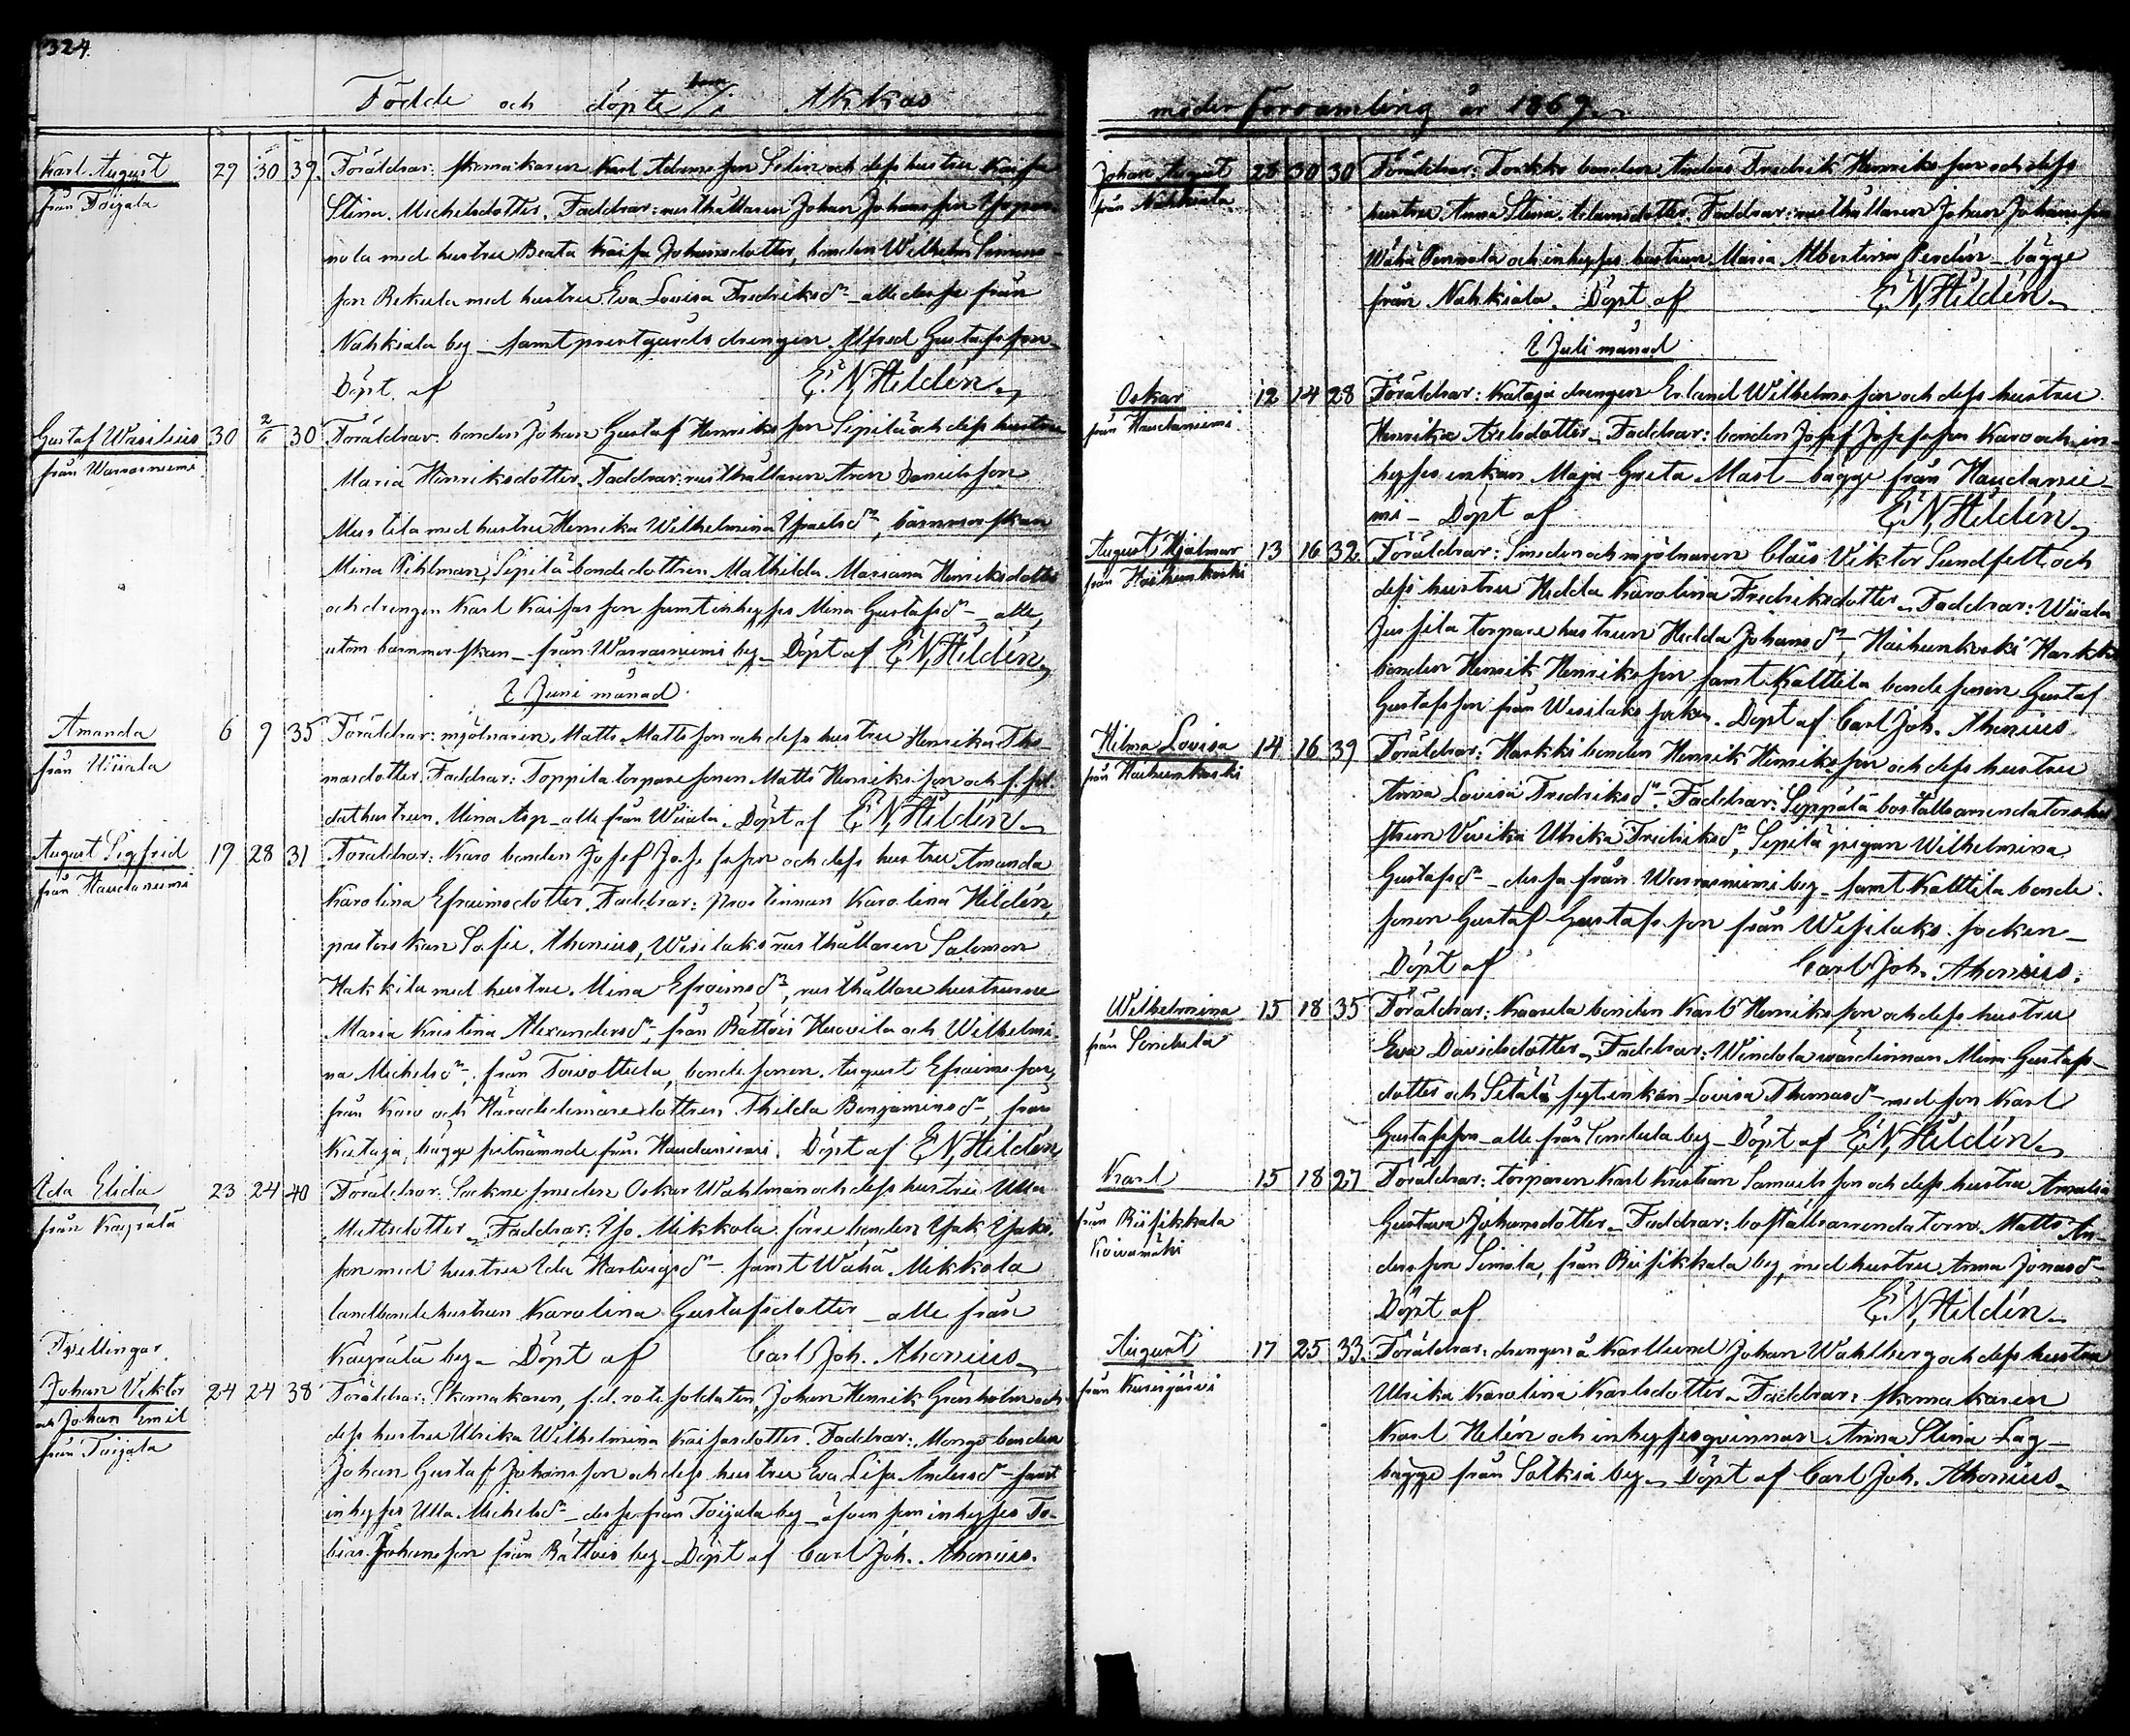 324.
Födde och döpte i Akkas
Karl August 29 30 39. Föräldrar: skomakaren Karl Adamsson Selin och dess hustru Kaisa
från Toijala Stina Michelsdotter. Faddrar: rusthållaren Johan Johansson
nola med hustru Beata Kaisa Johansdotter, bonden Wilhelm Simons-
son Rekula med hustru Eva Lovisa Fredriksdr alle desse från
Nahkiala by samt prestgårds drengen Alfred Gustafsson
Döpt af E. N. Hildén
Gustaf Wasilius 30 2/6 30 Föräldrar: bonden Johan Gustaf Henriksson Sipilä och dess hustru
från Warrasniemi Maria Henriksdotter. Faddrar: rusthållaren Aron Danielsson
Mustila med hustru Henrika Wilhelmina Israelsdr, barnmorskan
Mina Pihlman, Sipilä bondedottren Mathilda Mariana Henriksdotter
och drengen Karl Kaifasson samt inhyses Mina Gustafsdr alle,
utom barnmorskan från Warrasniemi by Döpt af E. N. Hildén
I Juni månad
Amanda 6 9 35 Föräldrar: mjölnaren Matts Mattsson och dess hustru Henrika Tho-
från Wiiala masdotter. Faddrar: Toppila torparesonen Matts Henriksson och f. sol-
dathustrun Mina Asp alle från Wiiala. Döpt af E. N. Hildén
August Sigfrid 19 28 31 Föräldrar: Karo bonden Josef Josefsson och dess hustru Amanda
från Haudaniemi Karolina Efraimsdotter. Faddrar: Prostinnan Karolina Hildén,
pastorskan Sofie Ahonius, Wesilaks rusthållaren Salomon
Hakkila med hustru Mina Efraimsdr, rusthållare hustrurne
Maria Kristina Alexandersdr från Rättöis Huovila och Wilhelmi-
na Michelsdr från Toivottula, bondesonen August Efraimsson
från Karo och Häradsdomaredottren Thilda Benjaminsdr, från
Kataja, bägge sistnämnde från Haudaniemi. Döpt af E. N. Hildén
Ida Elida 23 24 40 Föräldrar: Sockne smeden Oskar Wahlman och dess hustru Ulla
från Kaÿrälä Mattsdotter. Faddrar: Iso Mikkola förre bonden Isak Isaks-
son med hustru Ida Hartvigsdr samt Wähä Mikkola
landbondehustrun Karolina Gustafsdotter alle från
Kaÿrälä by Döpt af Carl Joh. Ahonius
Tvillingar
Johan Viktor 24 24 38 Föräldrar: Skomakaren, f.d. rotesoldaten, Johan Henrik Grönholm och
och Johan Emil dess hustru Ulrika Wilhelmina Kaifasdotter. Faddrar: Mongo bonden
från Toijala Johan Gustaf Johansson och dess hustru Eva Lisa Andersdr samt
inhyses Ulla Michelsdr desse från Toijala by äfven som inhyses To-
bias Johansson från Rättöis by Döpt af Carl Joh. Ahonius.
moder församling år 1869.
Johan August 28 30 30 Föräldrar: bonden Anders Fredrik Henriksson och dess
från Nahkiala hustru Anna Stina Adamsdotter. Faddrar: rusthållaren Johan Johansson
Wähä Pennola och inhyses hustrun Maria Albertina bägge
från Nahkiala. Döpt af E. N. Hildén
I Juli månad
Oskar 12 14 28 Föräldrar: Kataja drengen Erland Wilhelmsson och dess hustru
från Haudaniemi Henrika Axelsdotter. Faddrar: bonden Josef Josefsson Karo och in-
hyses enkan Maja Greta Mast bägge från Haudanie-
mi Döpt af E. N. Hildén
August Hjalmar 13 16 32 Föräldrar: Smeden och mjölnaren Claës Viktor Sundfelt och
från Haihunkoski dess hustru Hedda Karolina Fredriksdotter. Faddrar: Wiiala
Jussila torparehustrun Hedda Johansdr, Haihunkoski Harkki
bonden Henrik Henriksson samt Kalttila bondesonen Gustaf
Gustafsson från Wesilaks socken. Döpt af Carl Joh. Ahonius
Hilma Lovisa 14 16 39 Föräldrar: Harkki bonden Henrik Henriksson och dess hustru
från Haihunkoski Anna Lovisa Fredriksdr. Faddrar: Seppälä boställsarrendatorshu-
strun Vivika Ulrika Fredriksdr, Sipilä pigan Wilhelmina
Gustafsdr dessa från Warrasniemi by samt Kalttila bonde
sonen Gustaf Gustafsson från Wesilaks socken
Döpt af Carl Joh. Ahonius.
Wilhelmina 15 18 35 Föräldrar: Kaarela bonden Karl Henriksson och dess hustru
från Sondula Eva Davidsdotter. Faddrar: Windola wärdinnan Mina Gustafs-
dotter och Setälä sytenkan Lovisa Thomasdr med son Karl
Gustafsson alle från Sondula by Döpt af E. N. Hildén
Karl 15 18 27 Föräldrar: torparen Karl Kristian Samuelsson och dess hustru Amalia
från Riisikkala Gustava Johansdotter. Faddrar: boställsarrendatorn Matts An-
Koivumäki dersson Simola, från Riisikkala by, med hustru Anna Jonasdr
Döpt af E. N. Hildén
August 17 25 33. Föräldrar: drengen å Karllund Johan Wahlberg och dess hustru
från Kurisjärvi Ulrika Karolina Karlsdotter. Faddrar: skomakaren
Karl Helén och inhysesqvinnan Anna Stina Lag
bägge från Sotkia by Döpt af Carl Joh. Ahonius.